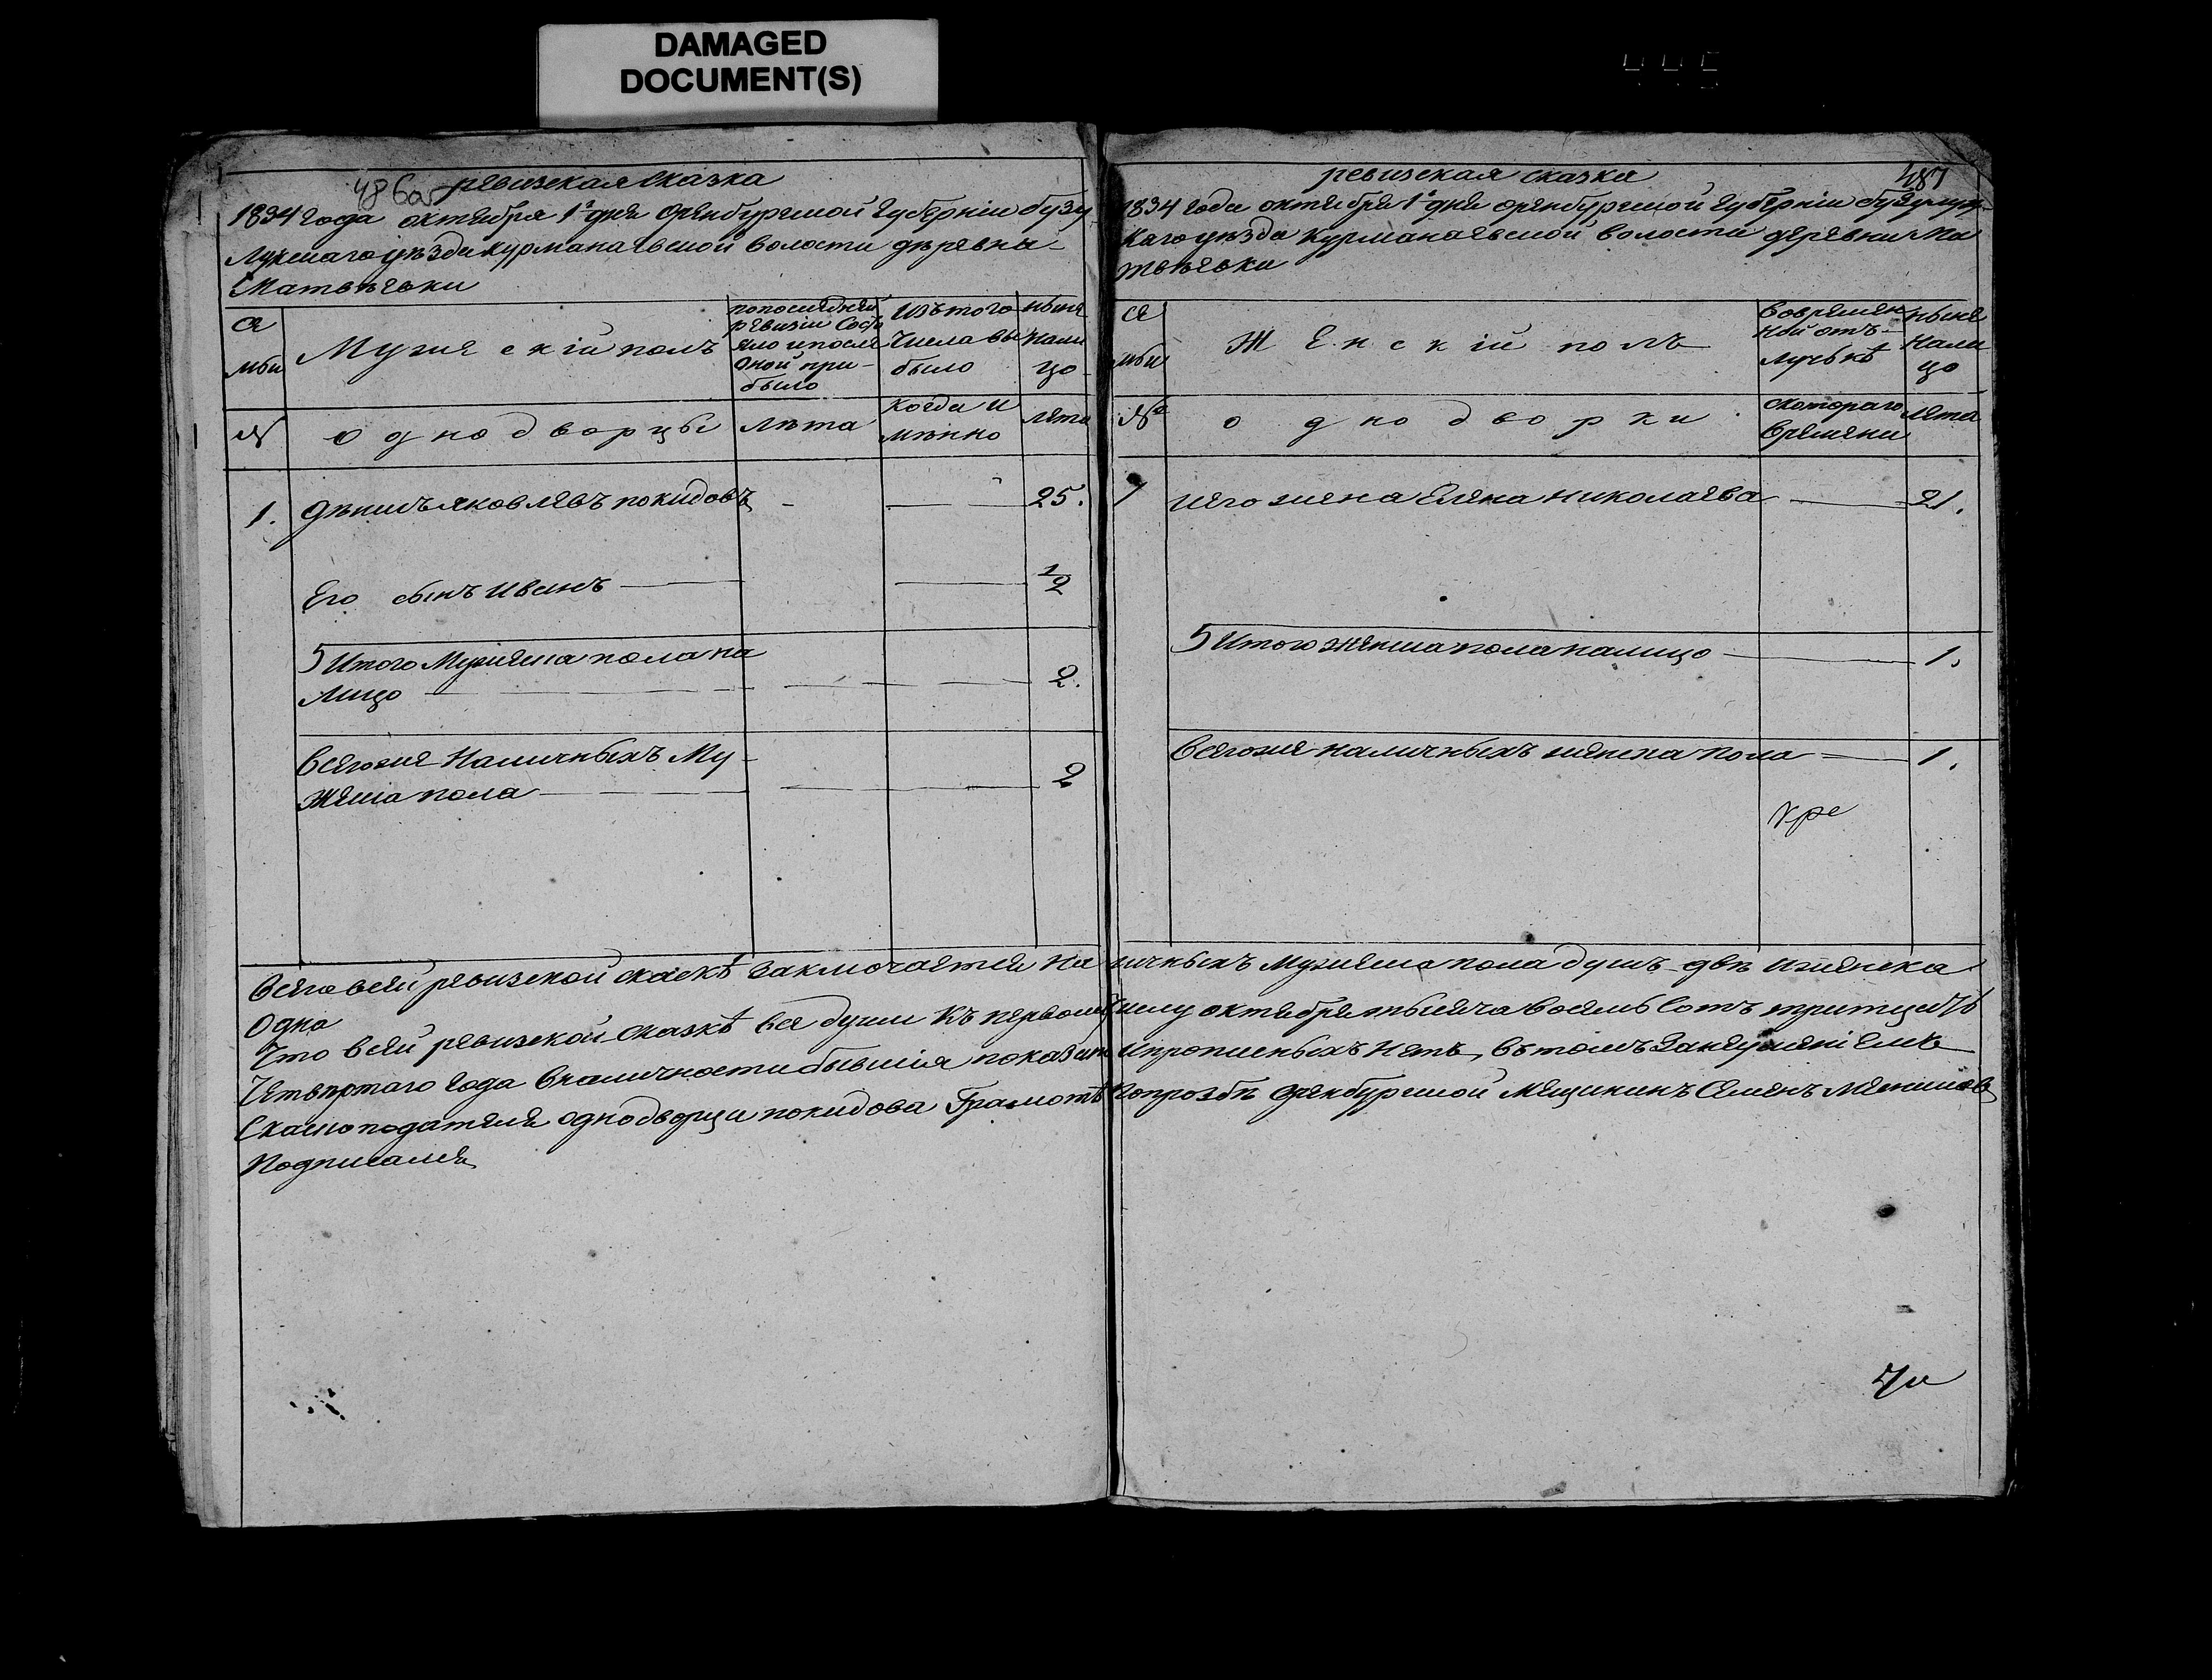 DAMAGED
DOCUMENT(S)
486об
ревизская сказка
1834 года октября 1го дня Оренбургской губернии бузу
лукскаго уѣзда курманаевской волости деревни
Матвѣевки
се
мьи
Мужескій полъ
по последней
ревизіи состо
яло и после
оной при-
было
Изъ того
числа вы
было
ныне
нали
цо
№
однодворцы
лѣта
когда и
мѣнно
лета
1.
яковлевъ покидовъ
25.
Его сынъ Иванъ
1/2
Итого Мужеска пола на
лицо
2.
Всегоже Наличныхъ Му
жеска пола
2
487
ревизская сказка
1834 года октября 1го дня оренбургской губерніи бузулук
каго уѣзда курманаевской волости деревни Ма
твѣевки
се
мьи
Женскій полъ
вовремен
ной отъ
лучькѣ
ныне
нали
цо
№
однодворки
скотораго
времени
лета
1
иего жена Елена николаева
21.
Итого женска пола налицо
1.
Всегоже наличныхъ женска пола
1.
Всего всей ревизской скаскѣ заключается на личныхъ мужеска пола душъ двѣ иженска
Одна
Что всей ревизской сказкѣ все души къ первому числу октября тысяча восемь сотъ тритцеть
Четвертаго года вналичности бывшія показаны ипрописныхъ нетъ, вътомъ
однодворца покидова Грамоте попрозбѣ оренбургской мещининъ Семенъ
Подписался